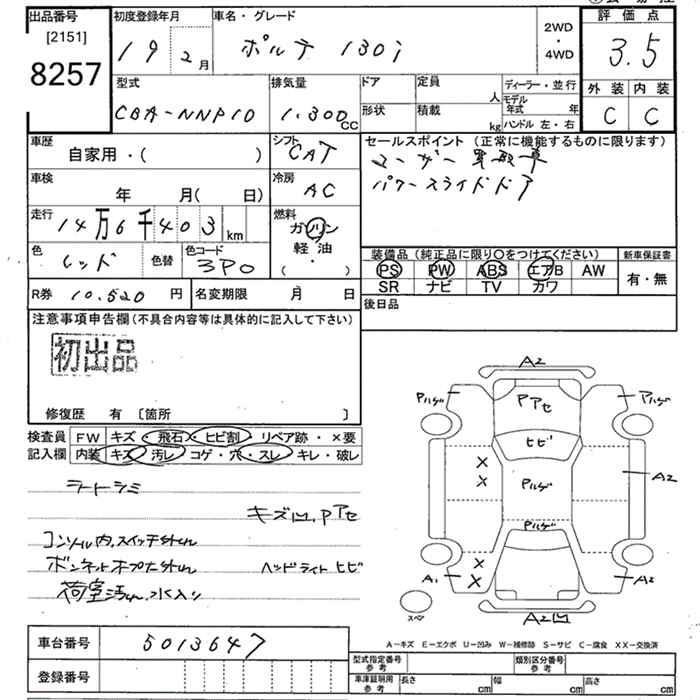 出品番号
[2151]
8257
初度登録年月
19 2月
車名・グレード
ポルテ 130i
2WD
・
4WD
評価点
3.5
型式
CBA-NNP10
排気量
1,300cc
ドア
形状
定員
人
積載
kg
ディーラー・並行
モデル年式 年
ハンドル 左・右
外装 内装
C C
車歴
自家用・( )
シフト
CAT
車検
年 月( 日)
冷房
AC
走行
14万6千403km
燃料
ガソリン
軽油
( ・ )
色
レッド
色替
色コード
3P0
R券 10,520 円
名変期限 月 日
セールスポイント (正常に機能するものに限ります)
ユーザー買取車
パワースライドドア
装備品(純正品に限り○をつけてください)
PS PW ABS エアB AW
SR ナビ TV カワ
新車保証書
有・無
後日品
注意事項申告欄(不具合内容等は具体的に記入して下さい)
初出品
修復歴 有 [箇所 ]
検査員記入欄
FW キズ・飛石・ヒビ割・リペア跡・×要
内装 キズ・汚レ・コゲ・穴・スレ・キレ・破レ
シートシミ
キズ凹、Pアセ
コンソル内、スイッチ外れ
ボンネットオプカ外れ ヘッドライトヒビ
荷室汚れ、水入り
A2
Pハゲ Pアセ Pハゲ
ヒビ
×
×
Pハゲ
A2
Pハゲ
×
×
A1 A2
スペア
A2凹
A-キズ E-エクボ U-凹み W-補修跡 S-サビ C-腐食 XX-交換済
車台番号 5013647
登録番号
型式指定番号 参考
類別区分番号 参考
車庫証明用 参考
長さ cm 幅 cm 高さ cm